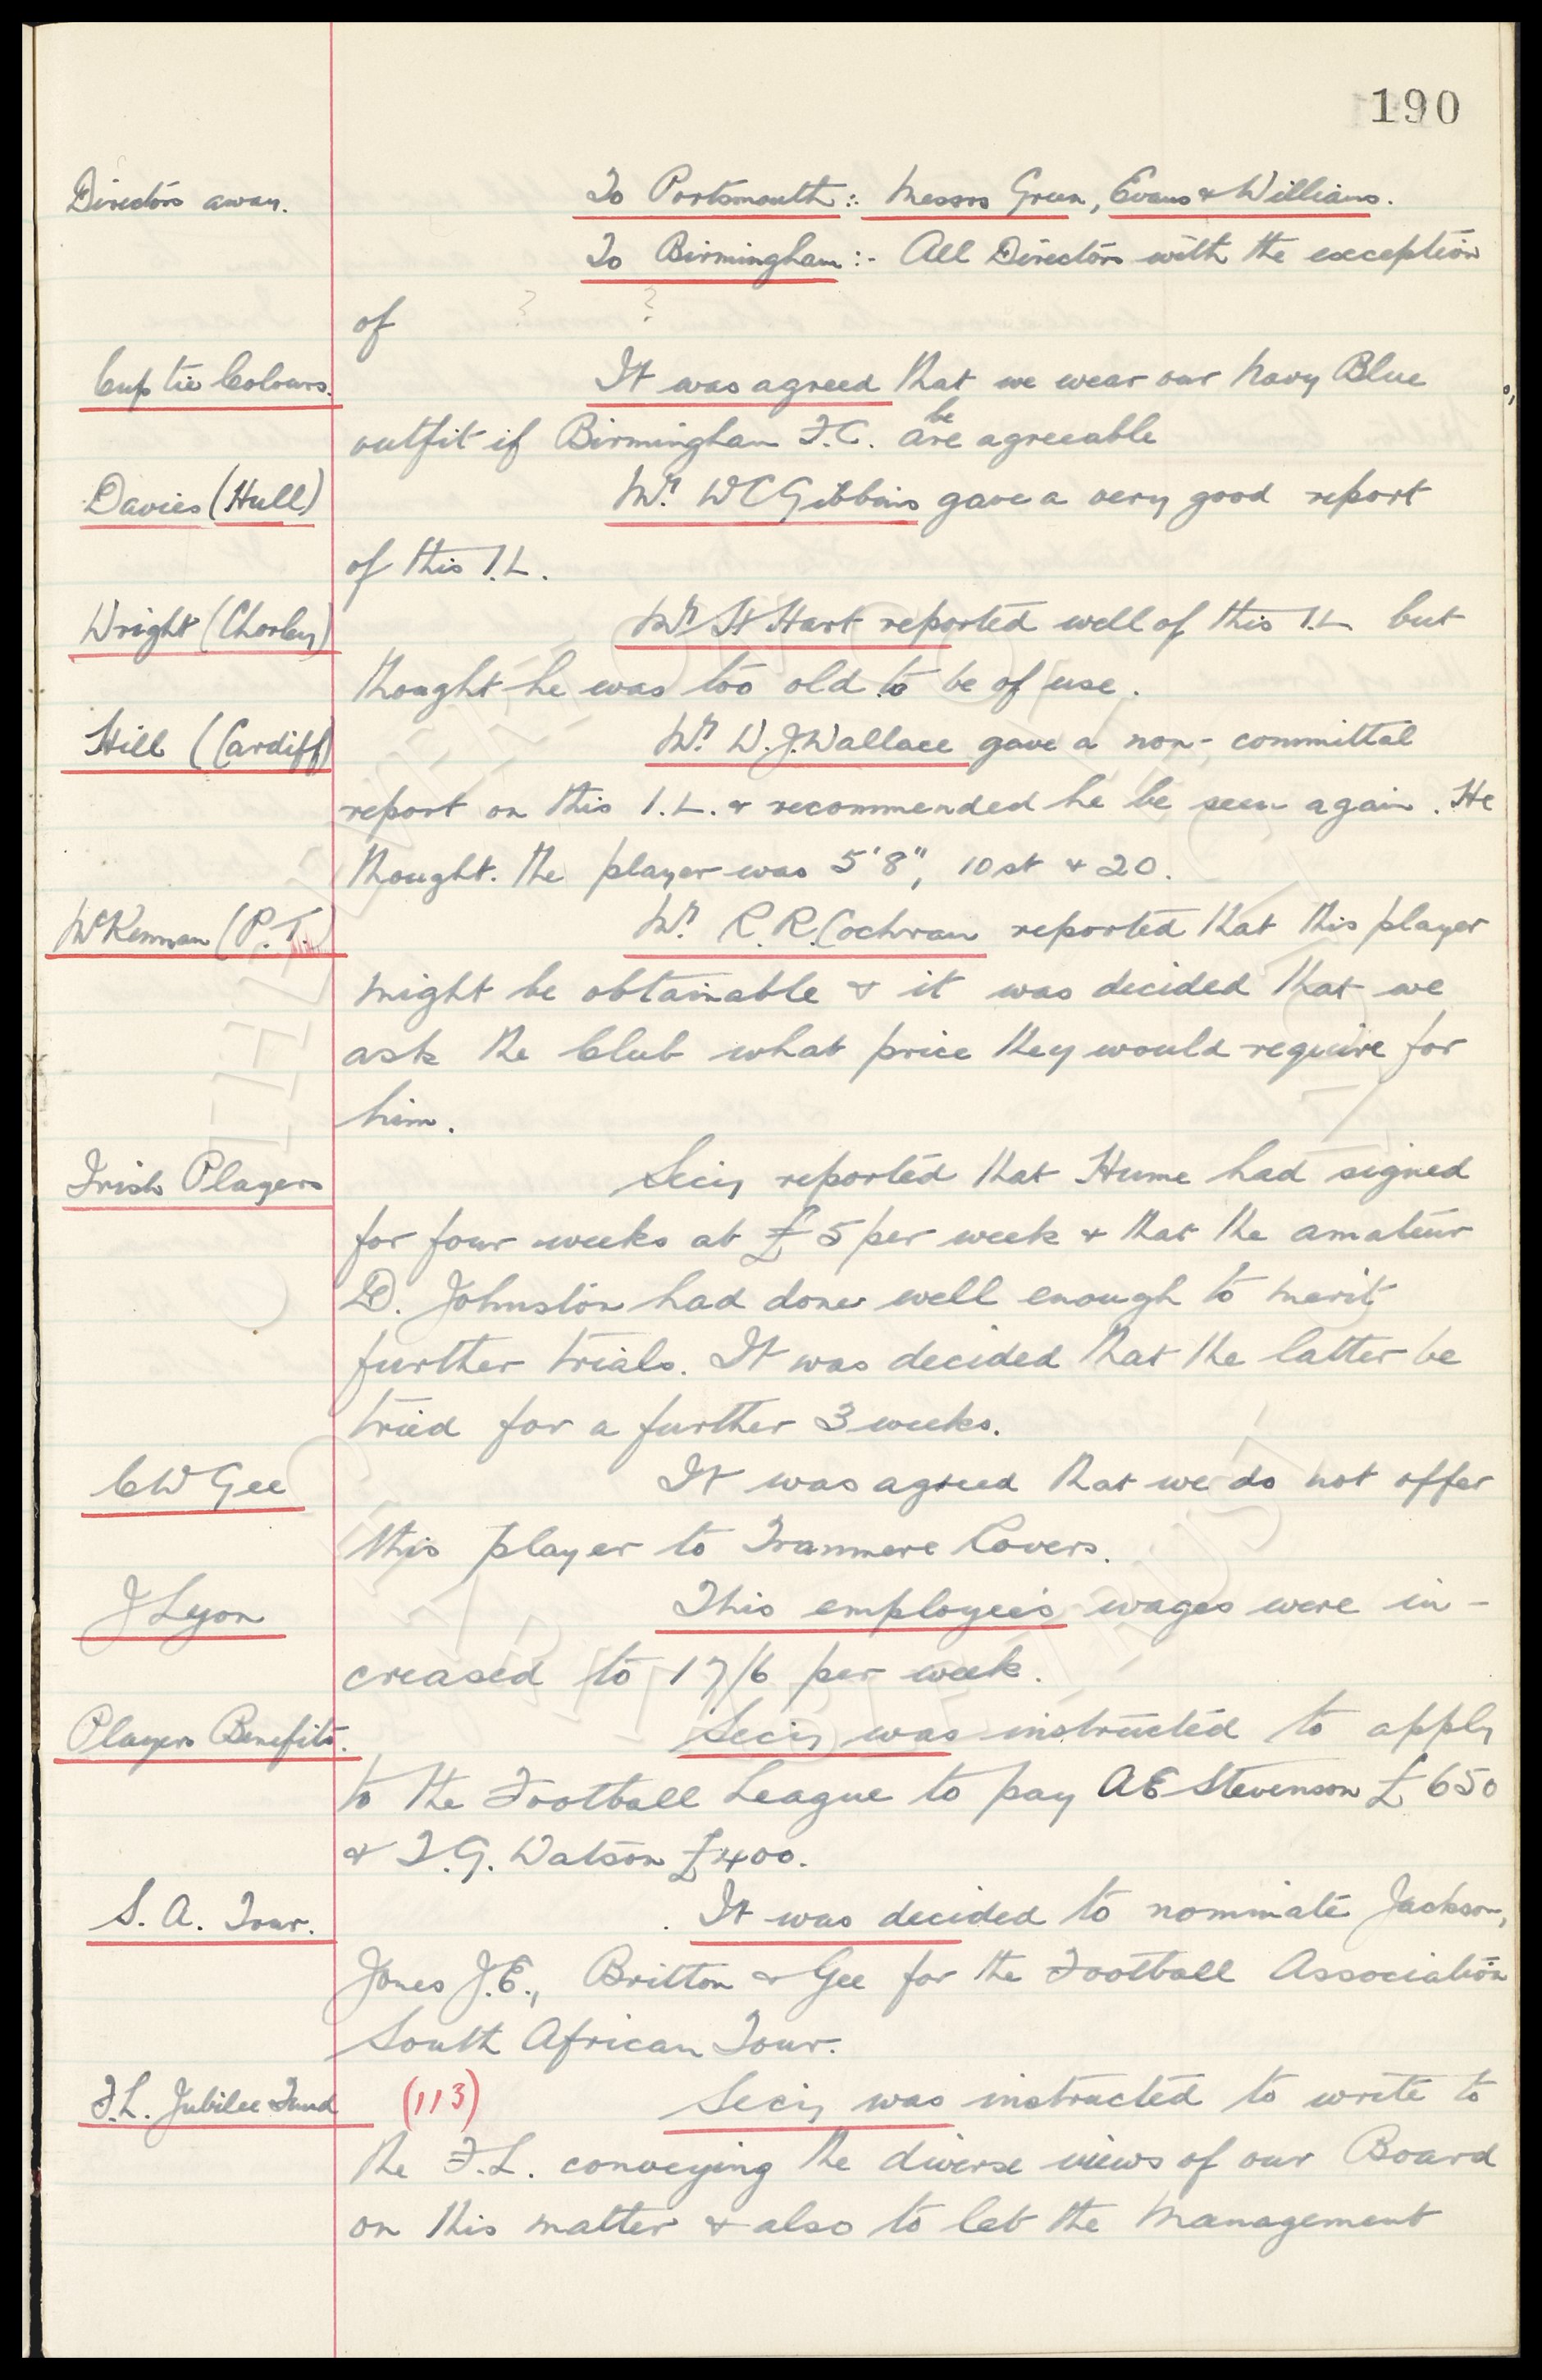 190
Directors away. To Portsmouth :. Messrs Green, Evans & Williams.
To Birmingham :- All Directors with the exception
of ? ?
Cup tie Colours. It was agreed that we wear our Navy Blue
be
outfit if Birmingham F.C. are agreeable
Davies (Hull) Mr. W C Gibbins gave a very good report
of this I.L.
Wright (Chorley) Mr. H Hart reported well of this I.L but
thought he was too old to be of use.
Hill (Cardiff) Mr. W.J. Wallace gave a non-committal
report on this I.L. & recommended he be seen again. He
thought the player was 5'8", 10 st & 20.
McKennan (P.T. Mr. R.R. Cochran reported that this player
might be obtainable & it was decided that we
ask the Club what price they would require for
him.
Irish Players Secy reported that Hume had signed
for four weeks at £5 per week & that the amateur
D. Johnston had done well enough to merit
further trials. It was decided that the latter be
tried for a further 3 weeks.
C W Gee It was agreed that we do not offer
this player to Tranmere Rovers.
J Lyon This employee's wages were in-
creased to 17/6 per week.
Players Benefits. Secy was instructed to apply
to the Football League to pay A E Stevenson £650
& T.G. Watson £400.
S. A. Tour. It was decided to nominate Jackson,
Jones J.E., Britton & Gee for the Football Association
South African Tour.
F.L. Jubilee Fund (113) Secy was instructed to write to
the F.L. conveying the diverse views of our Board
on this matter & also to let the Management